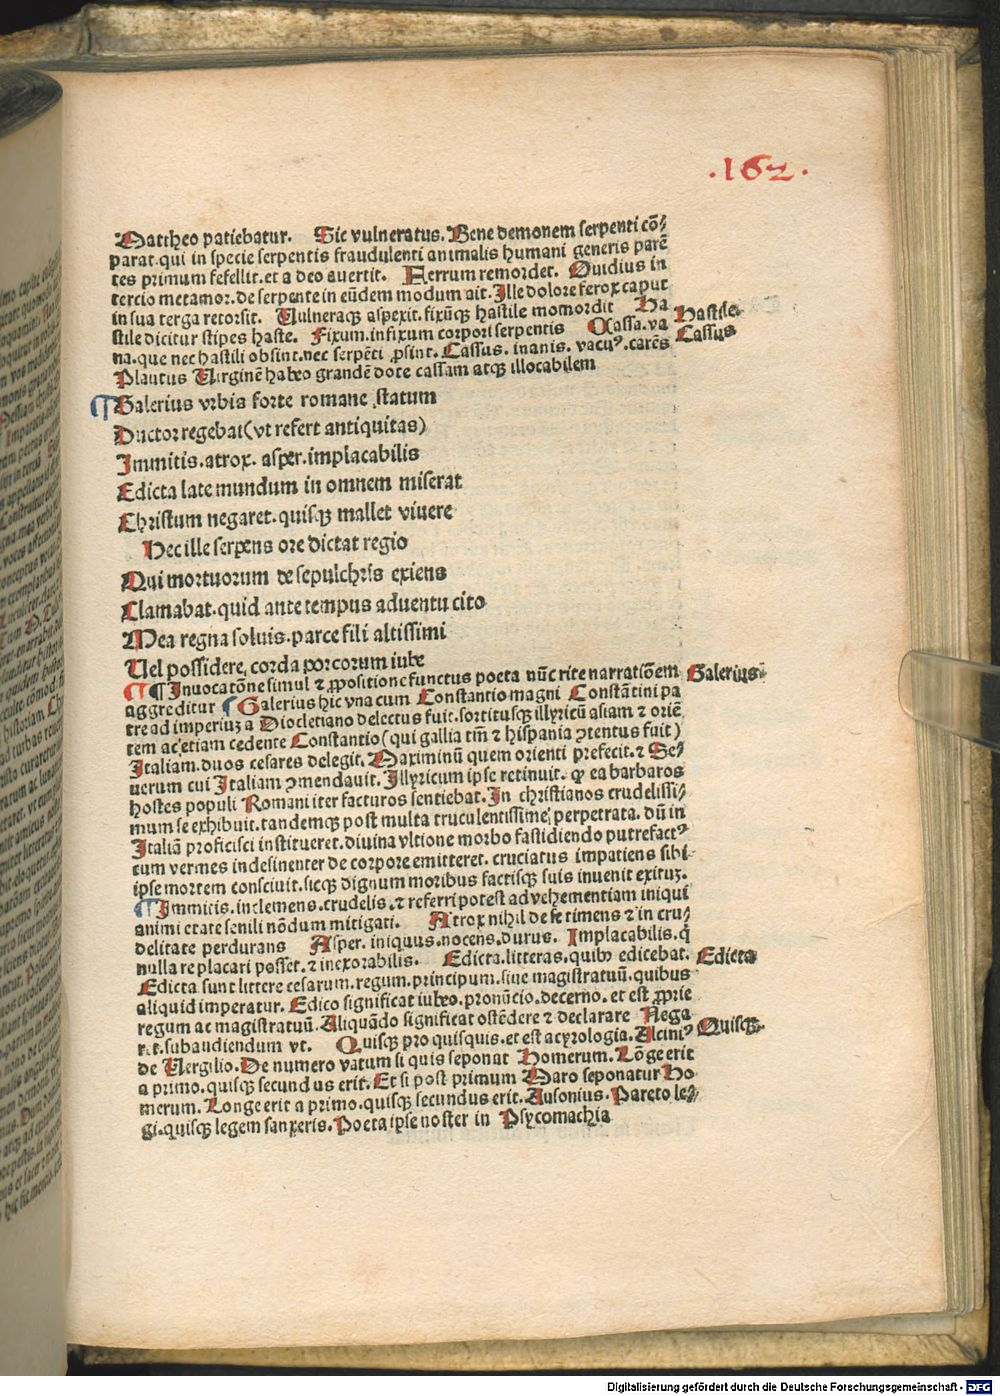 .162.
Mattheo patiebatur. Sic vulneratus. Bene demonem serpenti cō⸗
parat. qui in specie serpentis fraudulenti animalis humani generis parē
tes primum fefellit. et a deo auertit. Ferrum remordet. Ouidius in
tercio metamor. de serpente in eūdem modum ait. Ille dolore ferox caput
in sua terga retorsit. Uulneraqꝫ aspexit. fixūqꝫ hastile momordit Ha
stile dicitur stipes haste. Fixum. infixum corpori serpentis Cassa. va
na. que nec hastili obsint. nec serpēti ꝓsint. Cassus. inanis. vacuꝰ. carēs
Plautus Uirginē habeo grandē dote cassam atqꝫ illocabilem
Hastile.
Cassus
¶ Galerius vrbis forte romane statum
Ductor regebat (vt refert antiquitas)
Immitis. atrox. asper. implacabilis
Edicta late mundum in omnem miserat
Christum negaret. quisqꝫ mallet viuere
Hec ille serpens ore dictat regio
Qui mortuorum de sepulchris exiens
Clamabat. quid ante tempus aduentu cito
Mea regna soluis. parce fili altissimi
Uel possidere, corda porcorum iube
¶ ¶ Inuocatōne simul ⁊ ꝓpositione functus poeta nūc rite narratiōem
aggreditur ¶ Galerius hic vna cum Constantio magni Constātini pa
tre ad imperiuꝫ a Diocletiano delectus fuit. sortitusqꝫ illyricū asiam ⁊ oriē
tem ac etiam cedente Constantio (qui gallia tm̄ ⁊ hispania ꝯtentus fuit)
Italiam. duos cesares delegit. Maximinū quem orienti prefecit. ⁊ Se⸗
uerum cui Italiam ꝯmendauit. Illyricum ipse retinuit. ꝙ ea barbaros
hostes populi Romani iter facturos sentiebat. In christianos crudelissi⸗
mum se exhibuit. tandemqꝫ post multa truculentissime perpetrata. dū in
Italiā proficisci institueret. diuina vltione morbo fastidiendo putrefactꝰ
cum vermes indesinenter de corpore emitteret. cruciatus impatiens sibi
ipse mortem consciuit. sicqꝫ dignum moribus factisqꝫ suis inuenit exituꝫ.
¶ Immitis. inclemens. crudelis. ⁊ referri potest ad vehementiam iniqui
animi etate senili nōdum mitigati. Atrox nihil de se timens ⁊ in cru⸗
delitate perdurans Asper. iniquus. nocens. durus. Implacabilis. q̄
nulla re placari posset. ⁊ inexorabilis. Edicta. litteras. quibꝫ edicebat.
Edicta sunt littere cesarum. regum. principum. siue magistratuū. quibus
aliquid imperatur. Edico significat iubeo. pronūcio. decerno. et est ꝓprie
regum ac magistratuū. Aliquādo significat ostēdere ⁊ declarare Nega
ret. subaudiendum vt. Quisqꝫ pro quisquis. et est acyrologia. Alciniꝰ
de Uergilio. De numero vatum si quis seponat Homerum. Lōge erit
a primo. quisqꝫ secundus erit. Et si post primum Maro seponatur Ho
merum. Longe erit a primo. quisqꝫ secundus erit. Ausonius. Pareto le⸗
gi. quisqꝫ legem sanxeris. Poeta ipse noster in Psycomachia
Galerius
Edicta
Quisqꝫ.
Digitalisierung gefördert durch die Deutsche Forschungsgemeinschaft - DFG